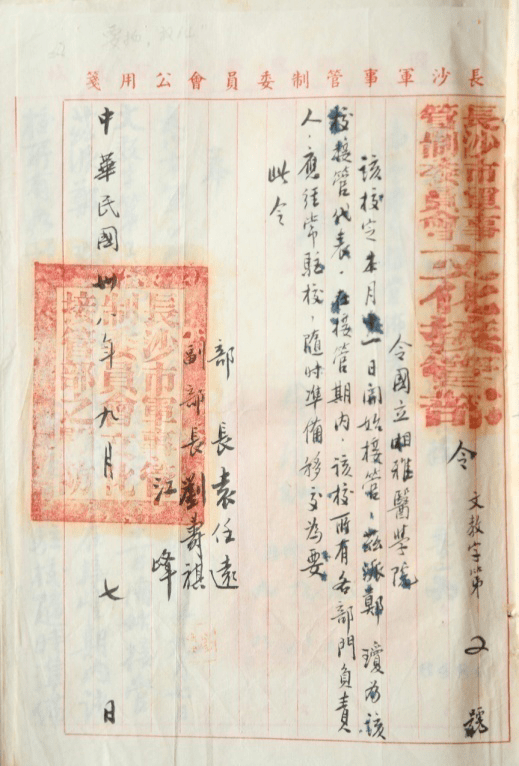 長沙軍事管制委員會公用箋
長沙市軍事管制委員會文化接管部
令 文教字第2號
令國立湘雅醫學院
該校定本月十一日開始接管，茲派鄭瓊為該
校接管代表，在接管期內，該校所有各部門負責
人，應經常駐校，隨時準備移交為要
此令
部長袁任遠
副部長劉壽祺
江峰
中華民國卅八年九月七日
長沙市軍事管
制委員會文化
接管部之關防